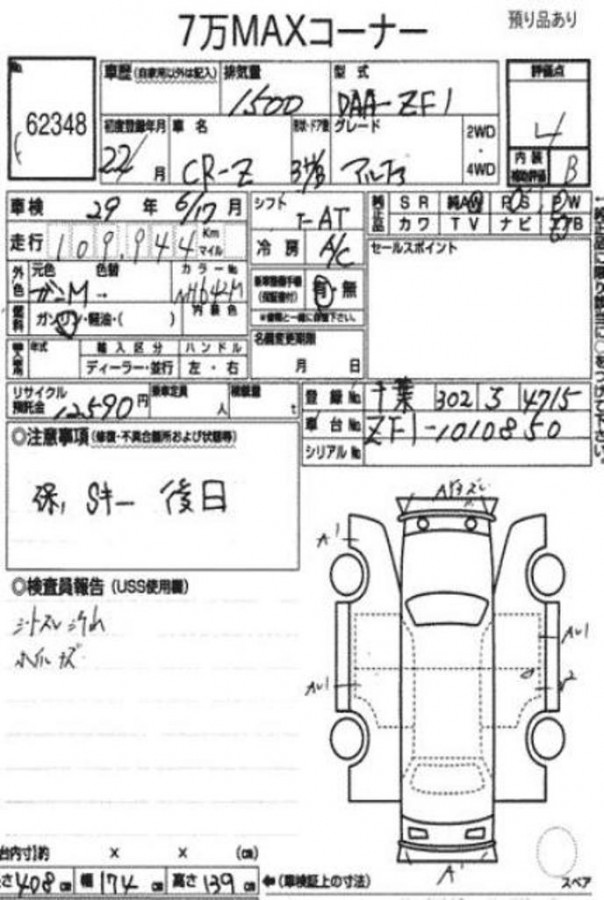 7万MAXコーナー
預り品あり
No.
62348
車歴(自家用以外は記入) 排気量 型式
1500 DAA-ZF1
評価点
4
内装補助評価 B
初度登録年月 車名 形状・ドア数 グレード 2WD・4WD
22/ 月 CR-Z 3 アルファ
車検 29年 6/17月
シフト AT
冷房 A/C
純正品 SR 純AW PS PW
カワ TV ナビ エアB
走行 109,944 Km マイル
セールスポイント
外色 元色 色替 カラーNo.
ガンM → NH642M
内装色
有・無
燃料 ガソリン・軽油・( )
名義変更期限
月 日
年式 輸入区分 ハンドル
ディーラー・並行 左・右
リサイクル預託金 12590円 乗車定員 人 積載量 t
登録No. 千葉 302 ろ 4715
車台No. ZF1-1010850
シリアルNo.
◎注意事項(修復・不具合箇所および状態等)
保、Sキー 後日
◎検査員報告(USS使用欄)
シートスレ汚れ
ホイルキズ
A1
AU1
AU1
A1
スペア
台内寸)約 × × (cm)
長さ 408cm 幅 174cm 高さ 139cm ←(車検証上の寸法)